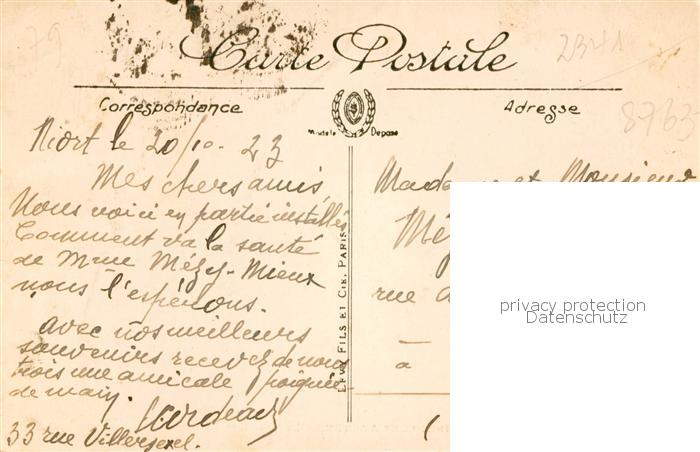 79
2341
Carte Postale
Correspondance
Adresse
8763
Modèle Déposé
Niort le 20/10. 23
Mes chers amis
Nous voici en partie installés
Comment va la santé
de Mme Mézy - Mieux
nous l'espérons.
avec nos meilleurs
souvenirs recevez de nous
trois une amicale poignée
de main.
33 rue Villersexel.
LEVY FILS ET CIE, PARIS
Madame et Monsieur
Méz
rue d
à
privacy protection
Datenschutz